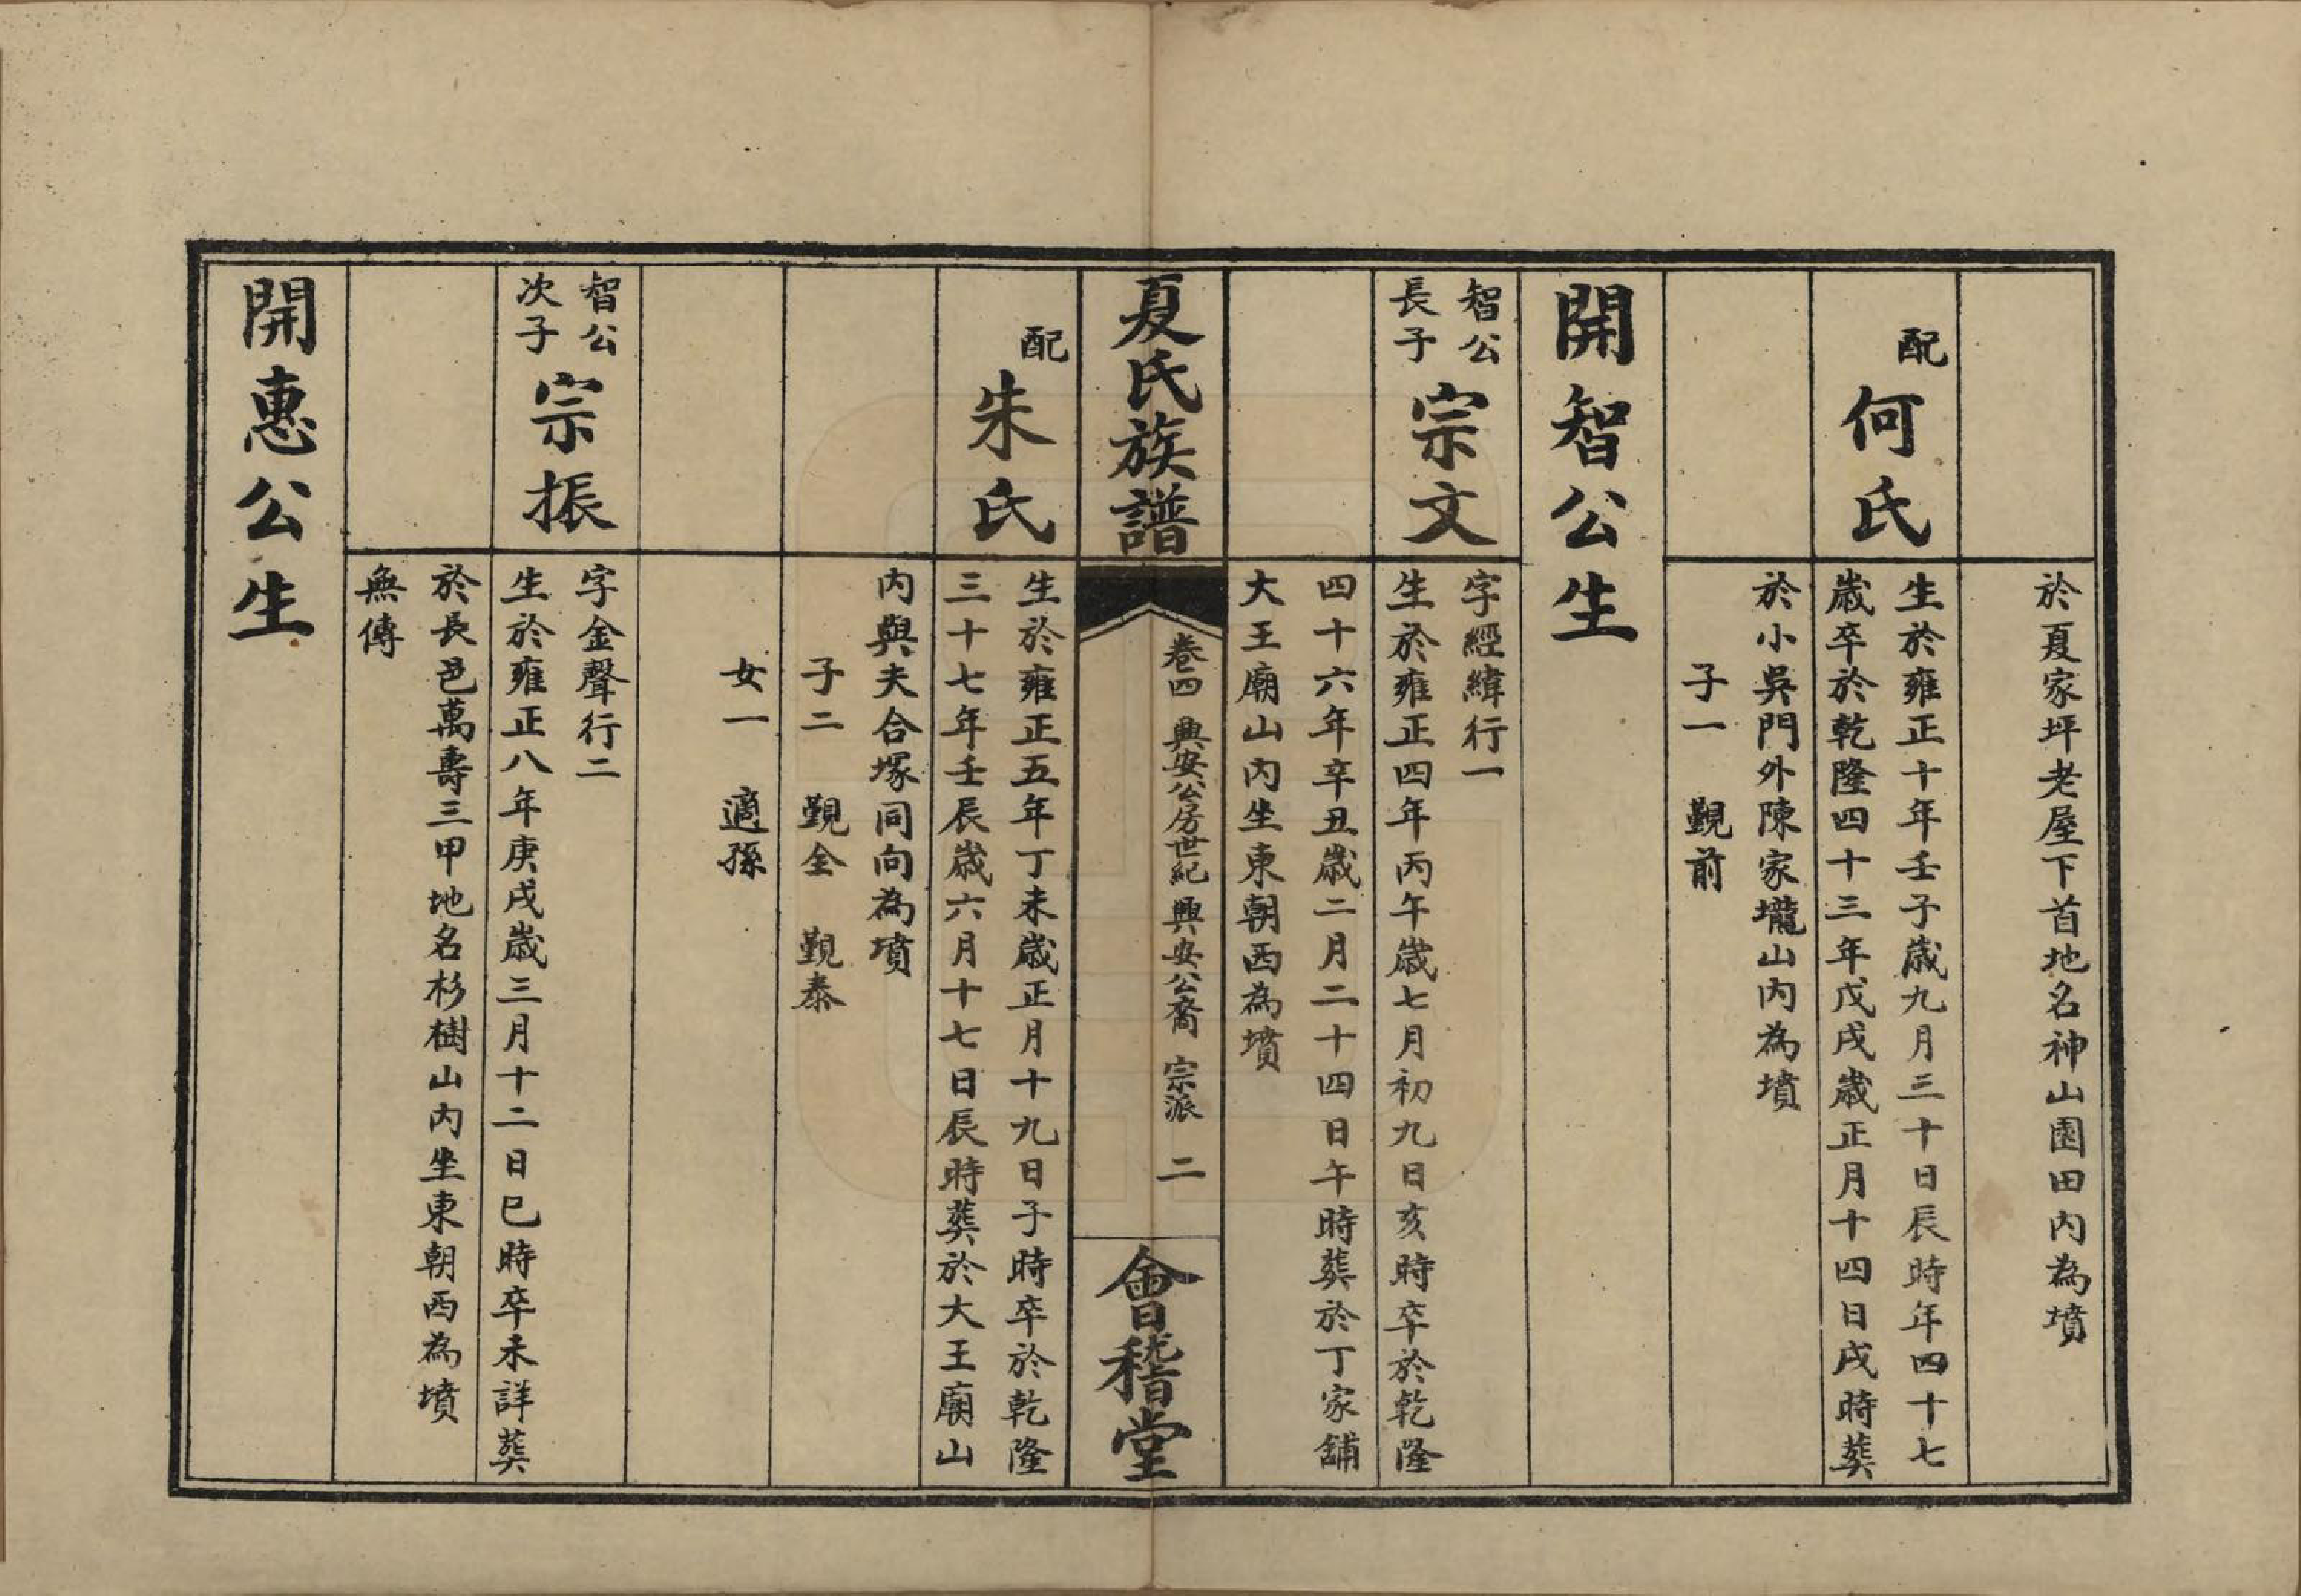 於夏家坪老屋下首地名神山園田內為墳
配
何氏
生於雍正十年壬子歲九月三十日辰時年四十七
歲卒於乾隆四十三年戊戌歲正月十四日戌時葬
於小吳門外陳家壠山內為墳
子一　覲前
開智公生
智公
長子
宗文
字經緯行一
生於雍正四年丙午歲七月初九日亥時卒於乾隆
四十六年辛丑歲二月二十四日午時葬於丁家舖
大王廟山內坐東朝西為墳
夏氏族譜
卷四　興安公房世紀　興安公裔　宗派　二
會稽堂
配
朱氏
生於雍正五年丁未歲正月十九日子時卒於乾隆
三十七年壬辰歲六月十七日辰時葬於大王廟山
內與夫合塚同向為墳
子二　覲全　覲泰
女一　適孫
智公
次子
宗振
字金聲行二
生於雍正八年庚戌歲三月十二日巳時卒未詳葬
於長邑萬壽三甲地名杉樹山內坐東朝西為墳
無傳
開惠公生